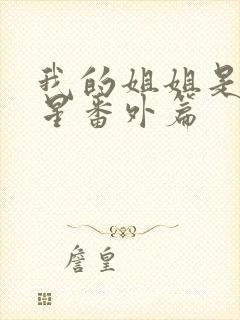 我的姐姐是
星番外篇
詹皇